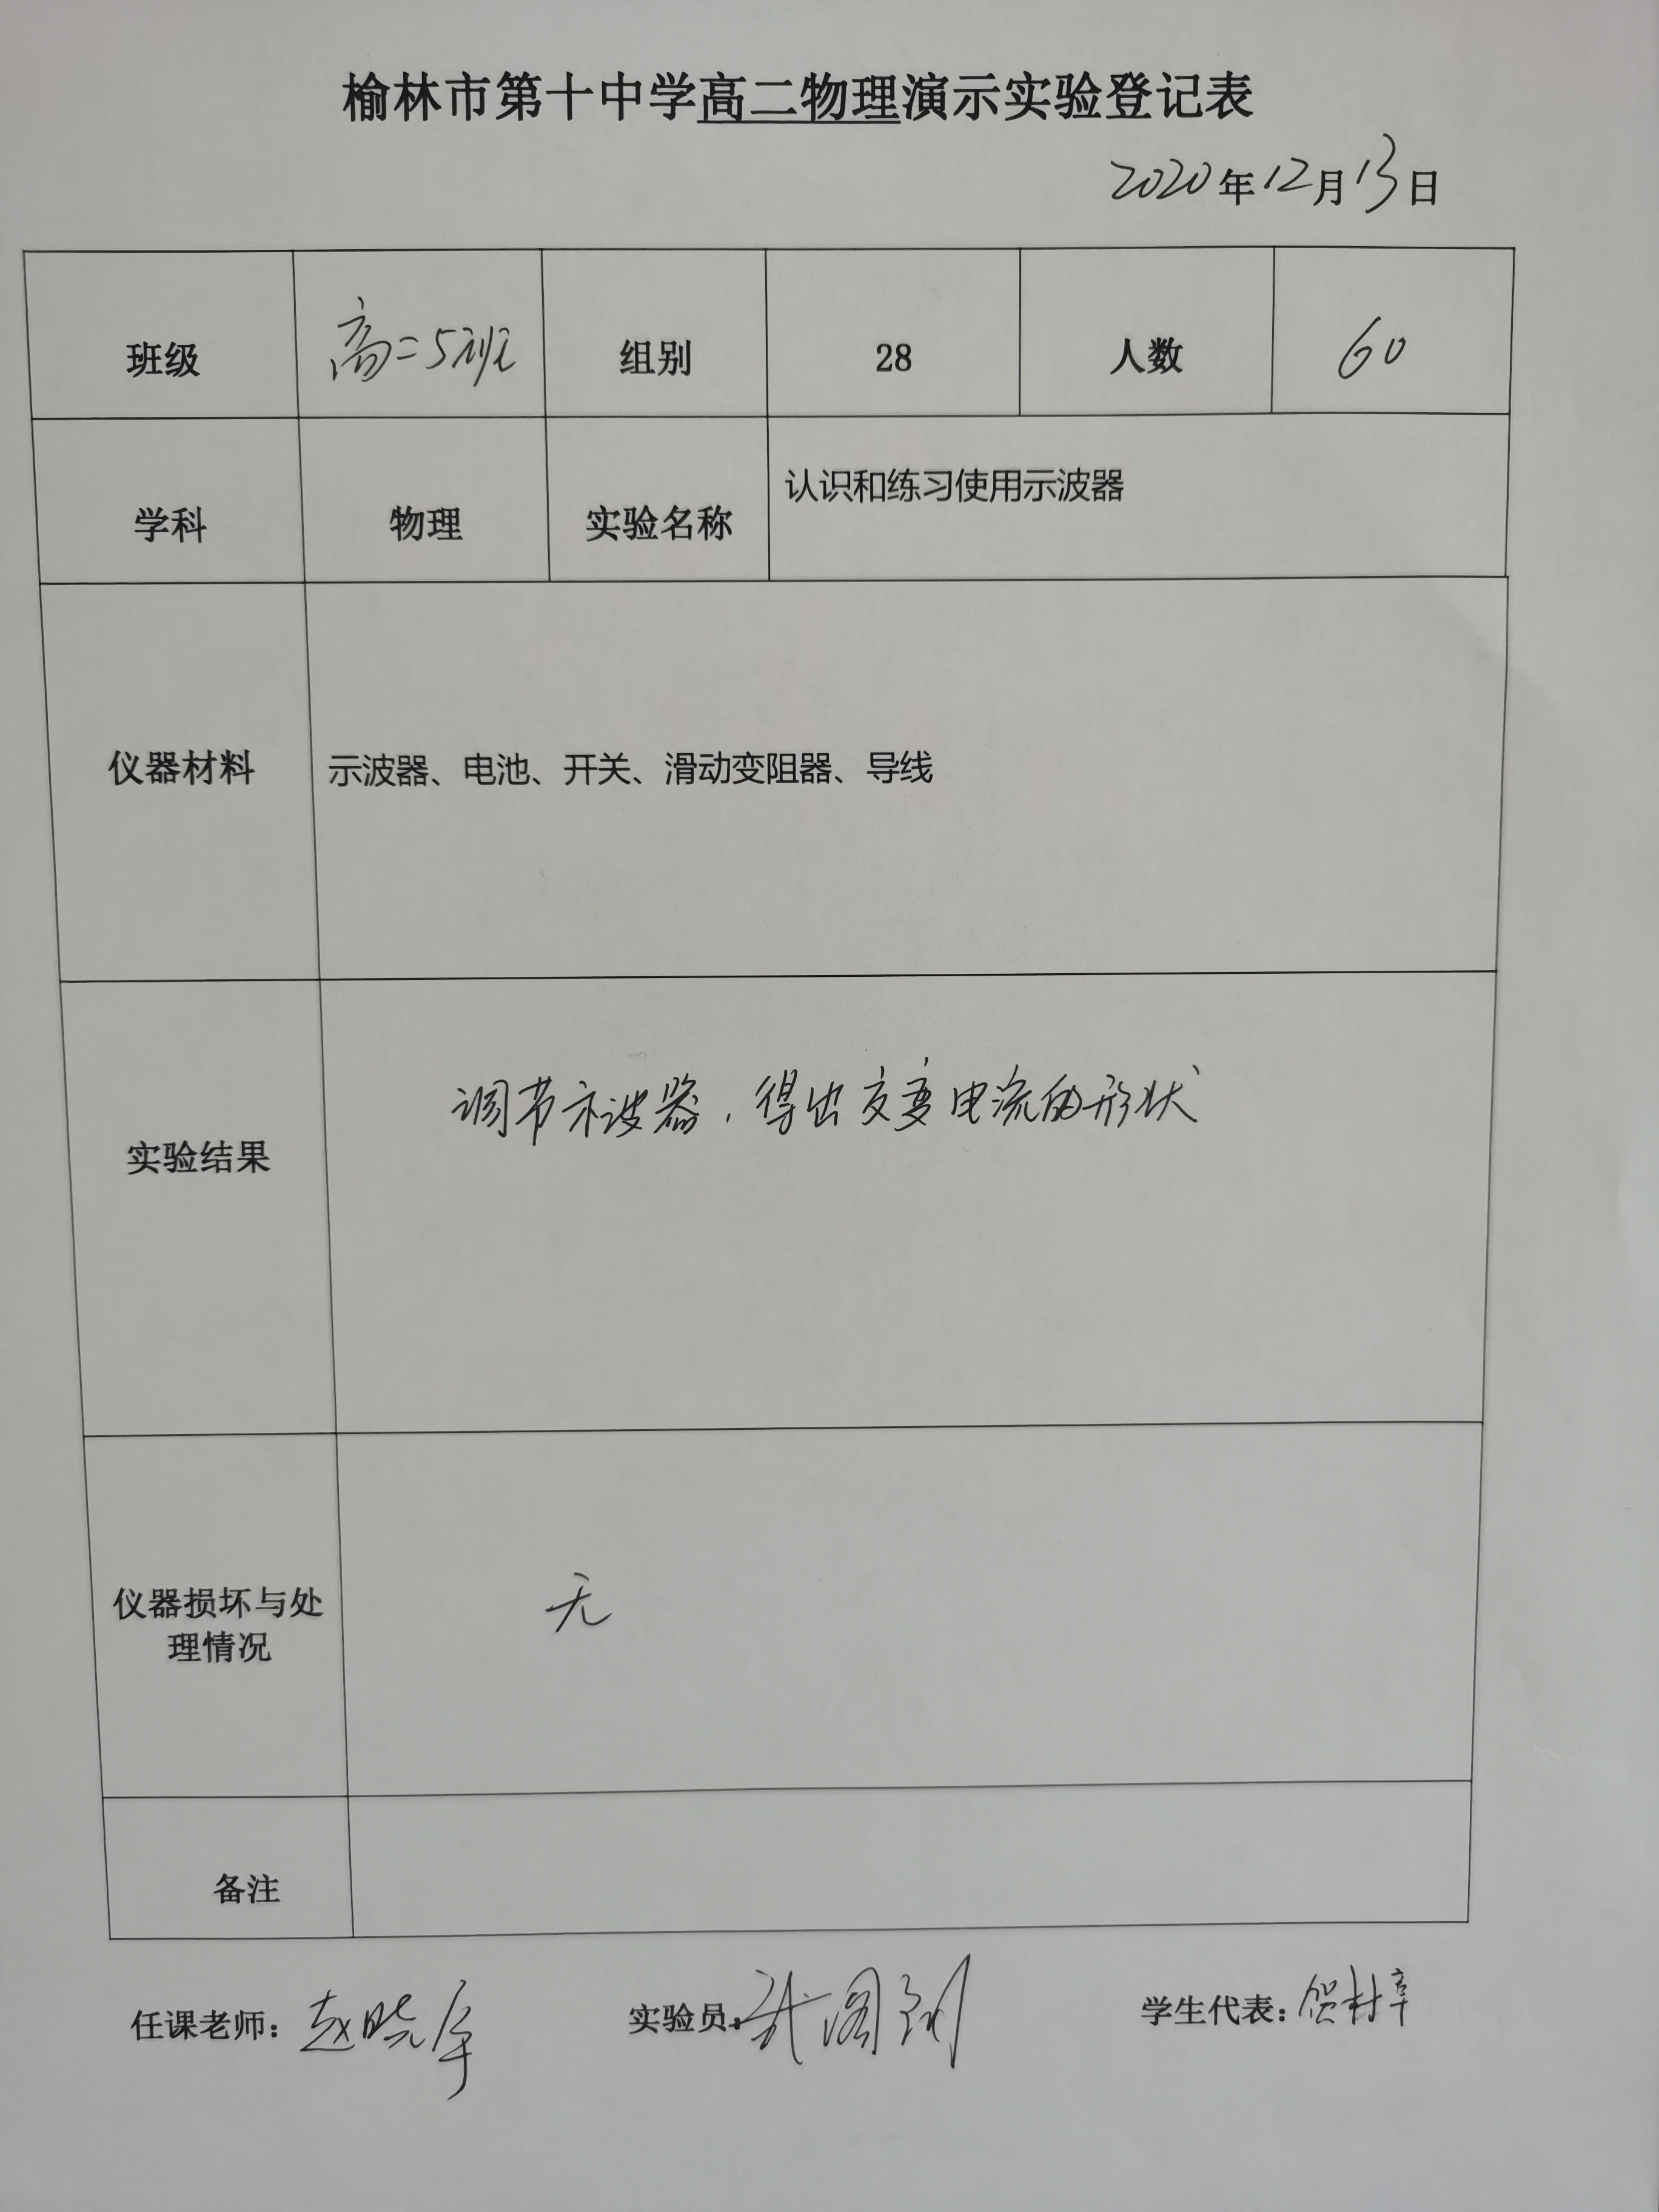 榆林市第十中学高二物理演示实验登记表
2020年12月13日
班级 高二5班 组别 28 人数 60
学科 物理 实验名称 认识和练习使用示波器
仪器材料 示波器、电池、开关、滑动变阻器、导线
实验结果 调节示波器,得出交变电流的形状
仪器损坏与处
理情况 无
备注
任课老师: 赵晓 实验员: 学生代表: 贺